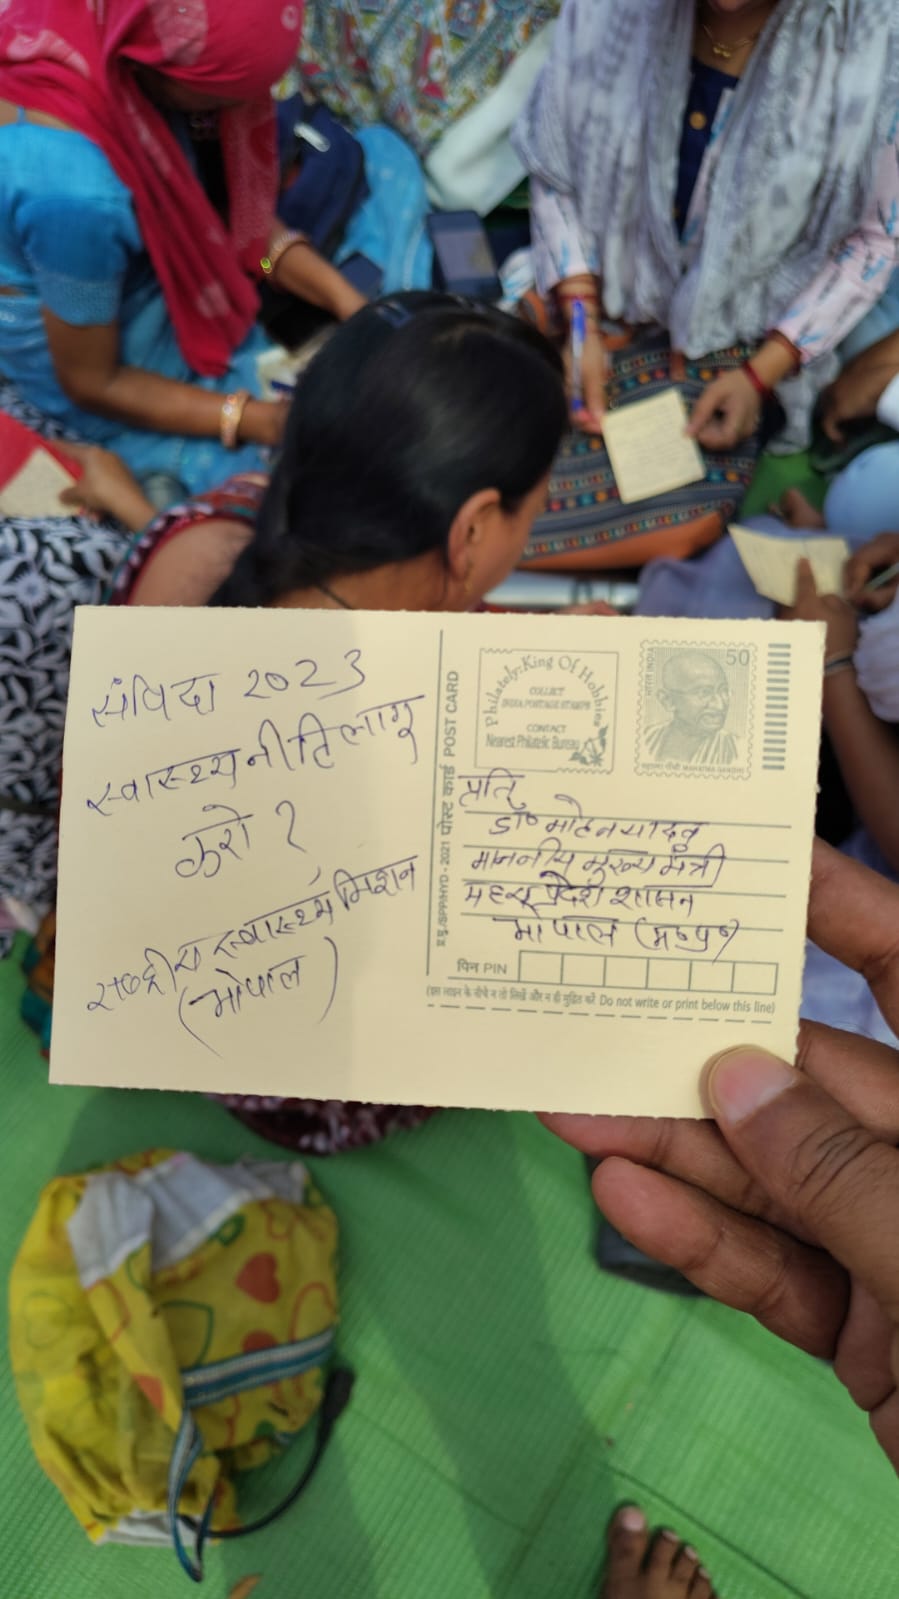 संविदा 2023
स्वास्थ्य नीति लागू
करो ?
राष्ट्रीय स्वास्थ्य मिशन
(भोपाल)
पोस्ट कार्ड POST CARD
Philately: King Of Hobbies
COLLECT
INDIA POSTAGE STAMPS
CONTACT
Nearest Philatelic Bureau
भारत INDIA
50
महात्मा गाँधी MAHATMA GANDHI
प्रति
डॉ० मोहन यादव
माननीय मुख्य मंत्री
मध्य प्रदेश शासन
भोपाल (म०प्र०)
पिन PIN
(इस लाइन के नीचे न तो लिखें और न ही मुद्रित करें Do not write or print below this line)